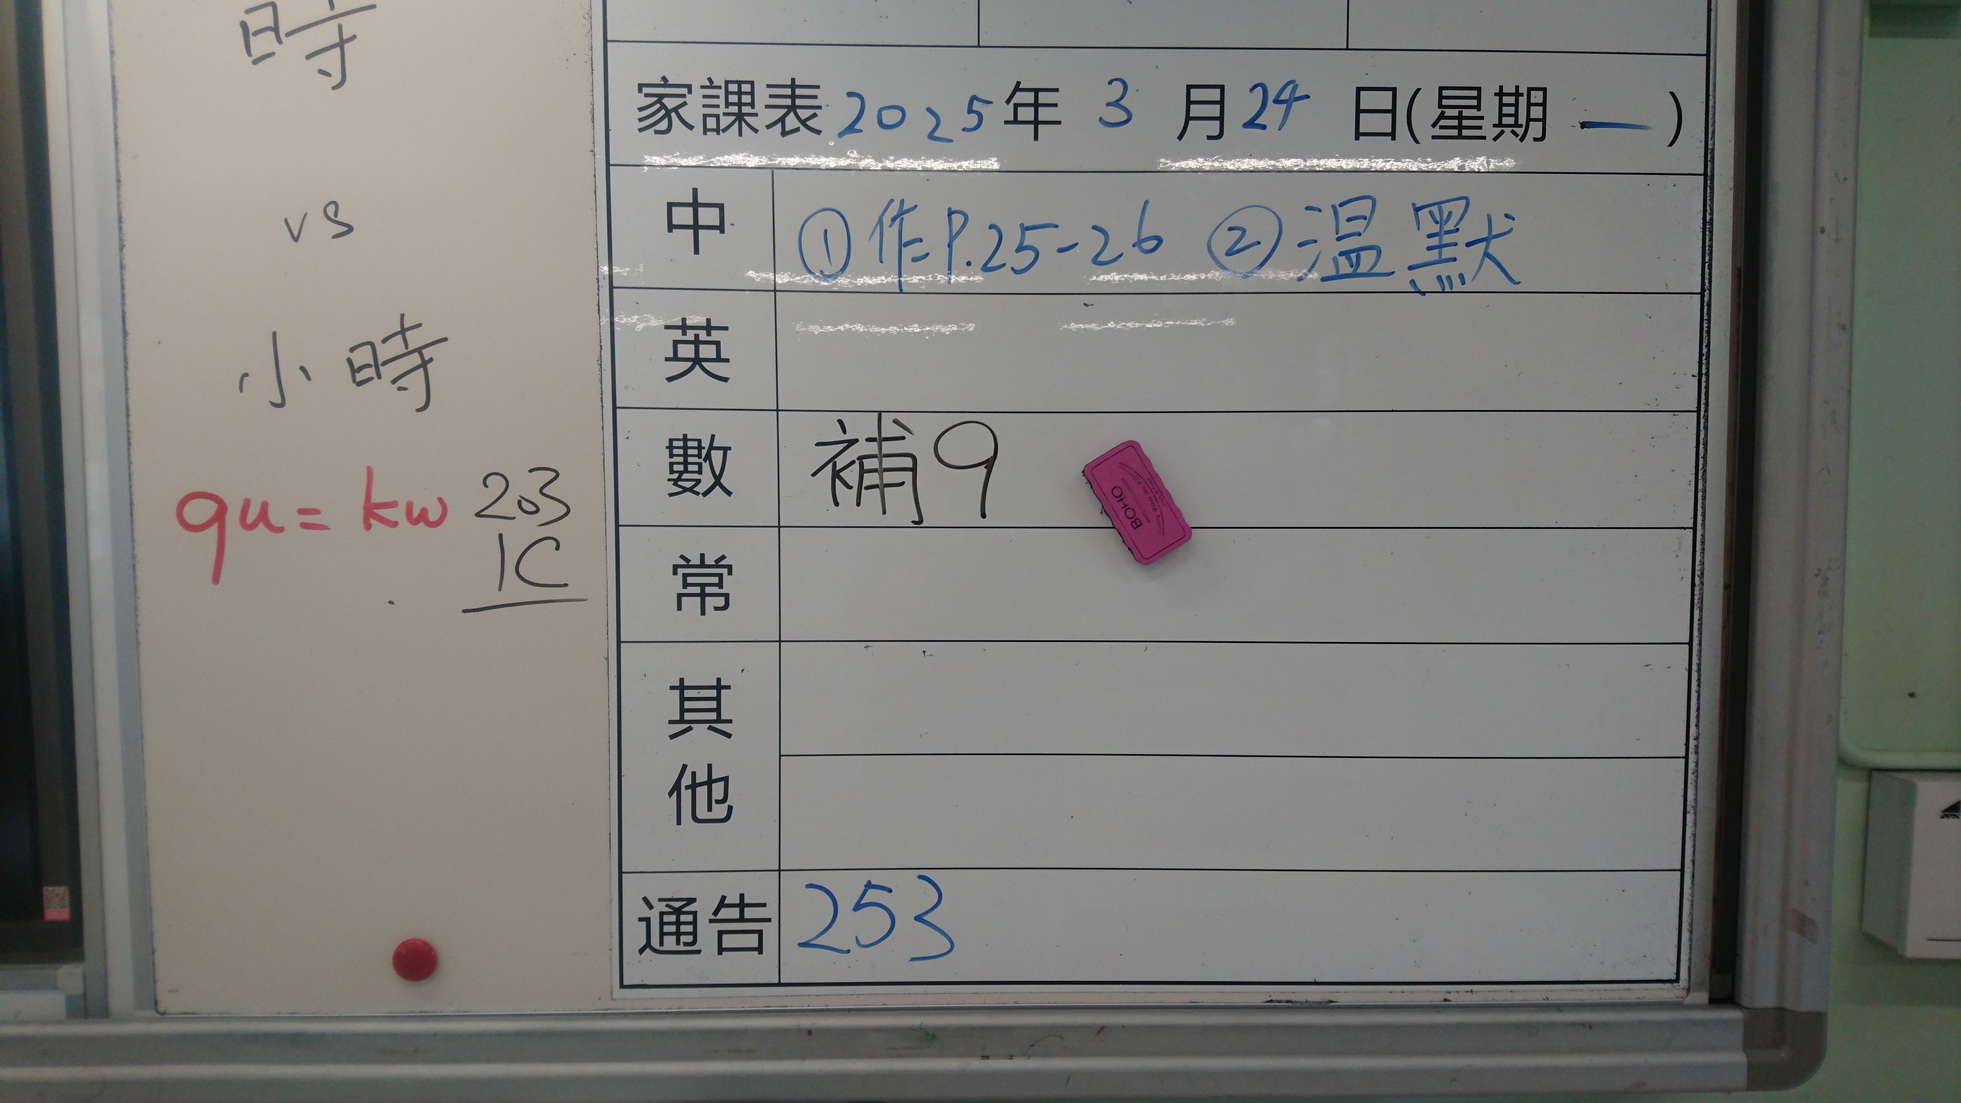 時
vs
小時
qu = kw
203
1C
家課表 2025年 3 月 24 日(星期 一 )
中 ①作P.25-26 ②温默
英
數 補9
BOHO
常
其他
通告 253